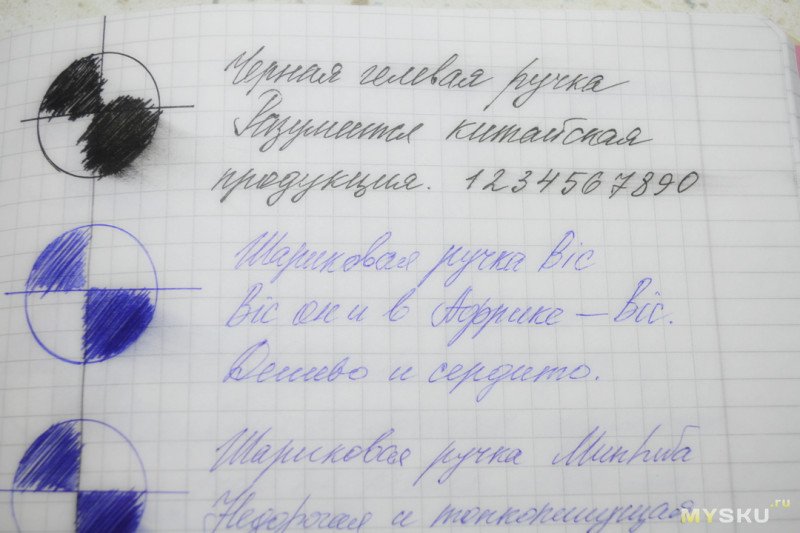 Черная гелевая ручка
Разумеется китайская
продукция. 1234567890
Шариковая ручка Bic
Bic он и в Африке — Bic.
Дешево и сердито.
Шариковая ручка
Недорогая и тонкопишущая
MYSKU.ru